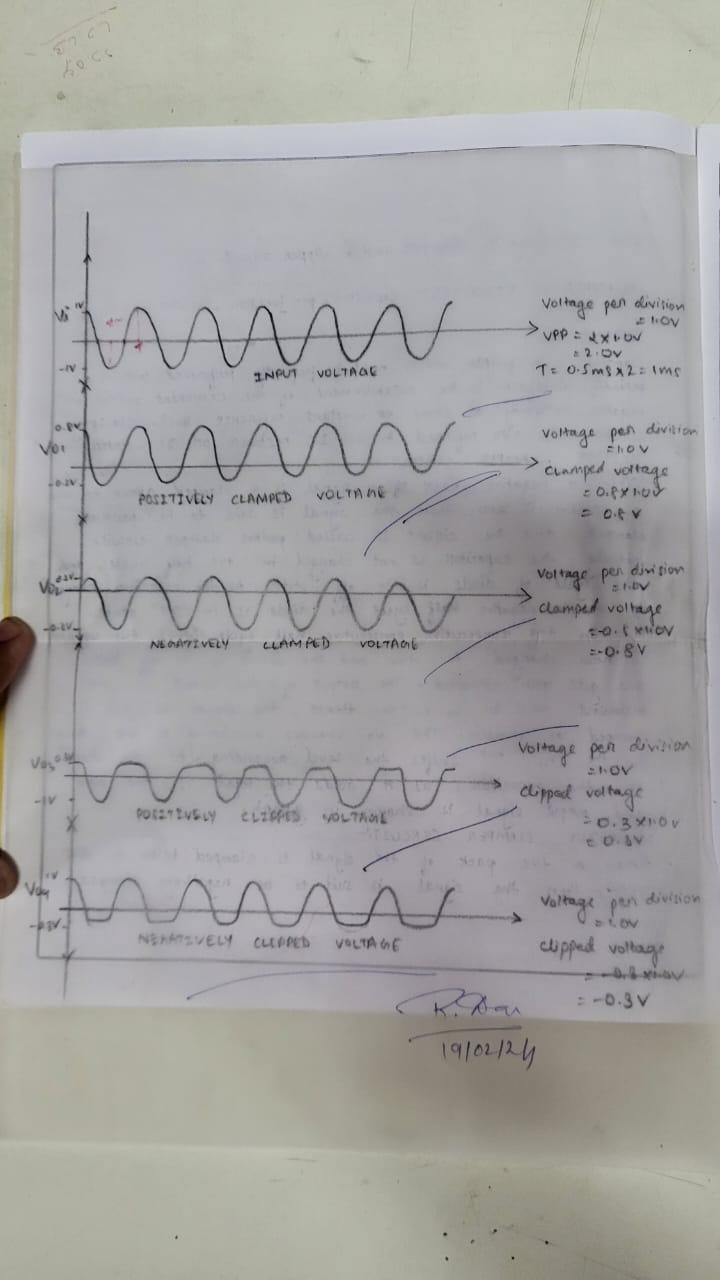 Vi
1V
-1V
INPUT VOLTAGE
Voltage per division
= 1.0V
VPP = 2 X 1.0V
= 2.0V
T = 0.5ms x 2 = 1ms
Vo1
0.8V
-0.2V
POSITIVELY CLAMPED VOLTAGE
Voltage per division
= 1.0V
Clamped voltage
= 0.8 x 1.0V
= 0.8 V
Vo2
0.2V
-0.8V
NEGATIVELY CLAMPED VOLTAGE
Voltage per division
= 1.0V
Clamped voltage
= -0.8 x 1.0V
= -0.8V
Vo3
-1V
POSITIVELY CLIPPED VOLTAGE
Voltage per division
= 1.0V
Clipped voltage
= 0.3 x 1.0V
= 0.3V
Vo4
1V
-0.3V
NEGATIVELY CLIPPED VOLTAGE
Voltage per division
= 1.0V
Clipped voltage
= -0.3 x 1.0V
= -0.3V
19/02/24